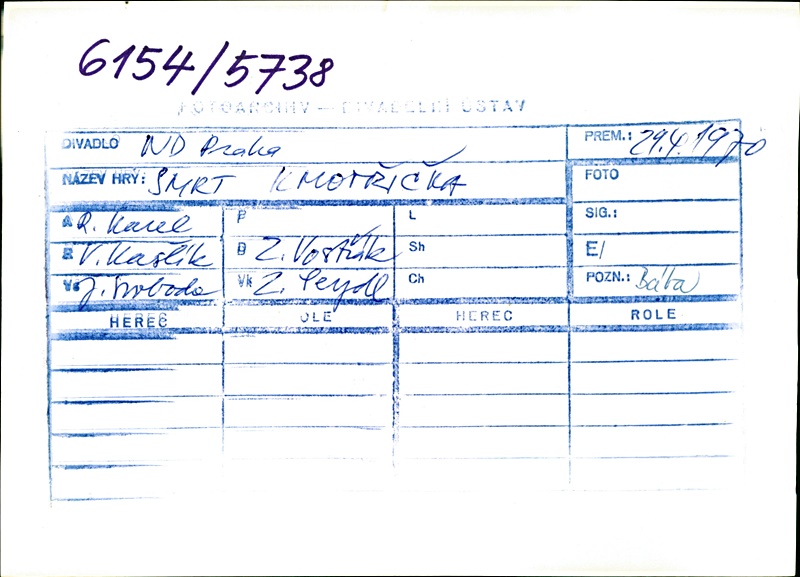 6154/5738
FOTOARCHIV — DIVADELNÍ ÚSTAV
DIVADLO ND Praha PREM.: 29.4.1970
NÁZEV HRY: SMRT KMOTŘIČKA FOTO
A R. Karel P L SIG.:
R V. Kašlík D Z. Vostřák Sh E/
Vs J. Svoboda Vk Z. Seydl Ch POZN.: Bába
HEREC ROLE HEREC ROLE